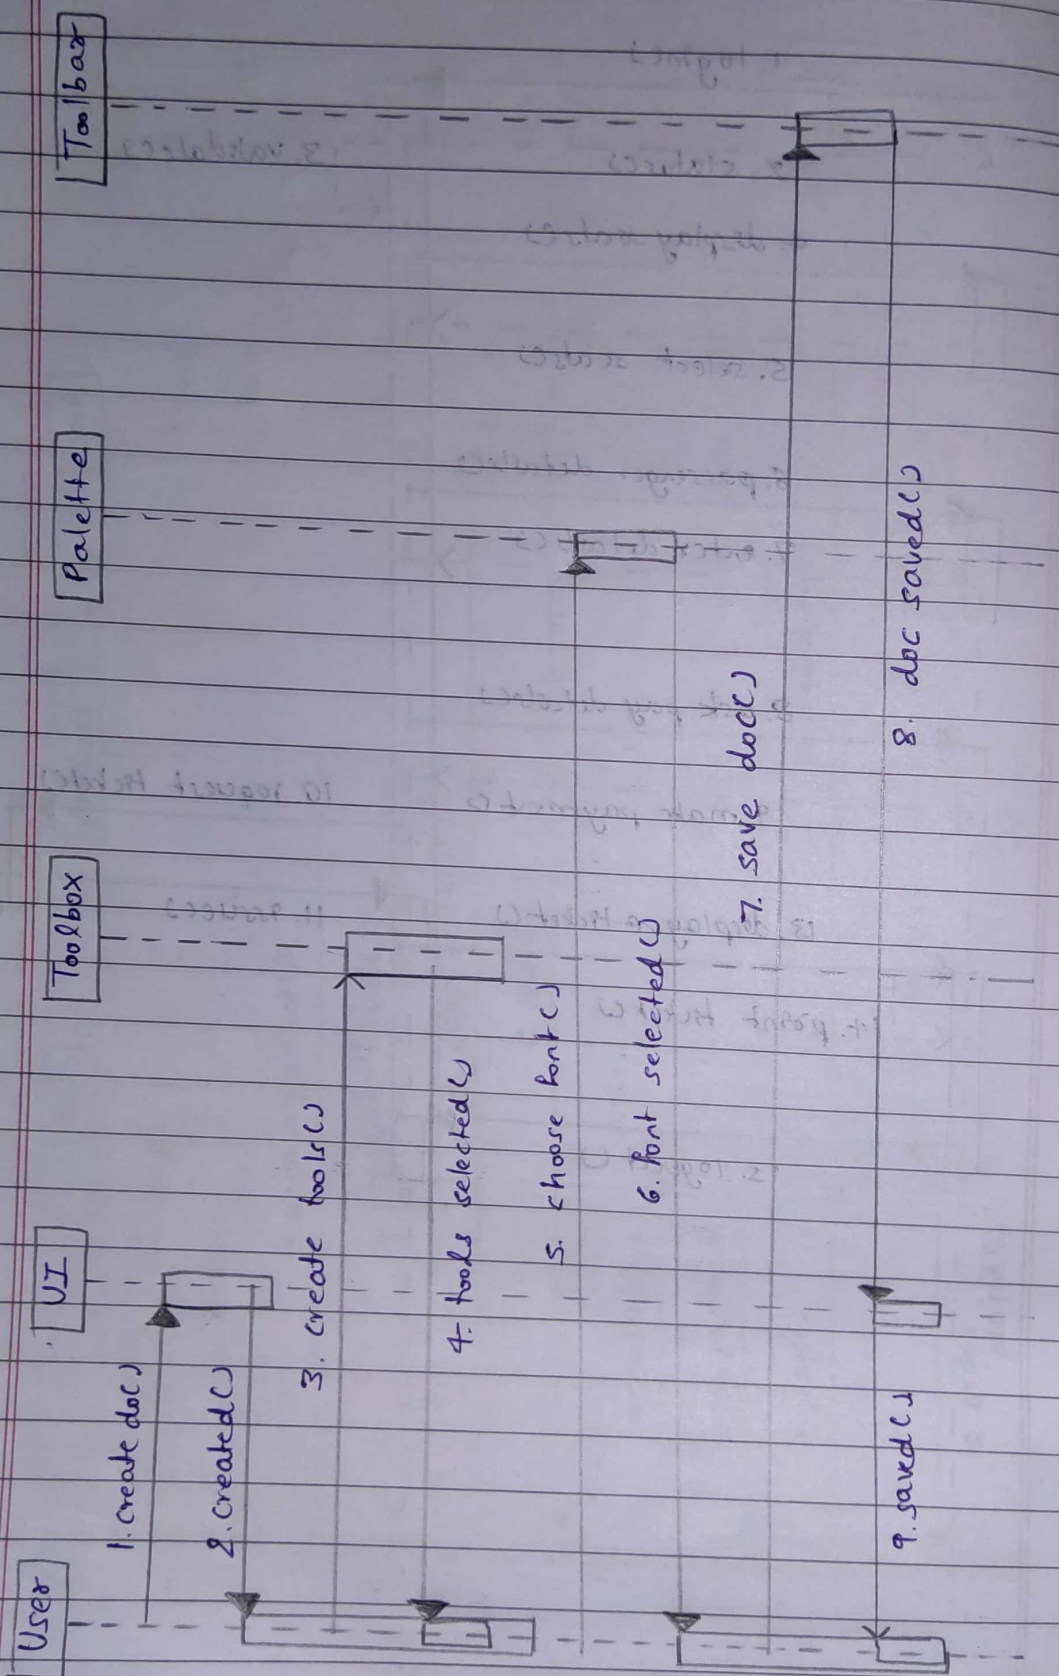 User
UI
Toolbox
Palette
Toolbar
1. create do()
2. created()
3. create tools()
4. tools selected()
5. choose font()
6. font selected()
7. save doc()
8. doc saved()
9. saved()